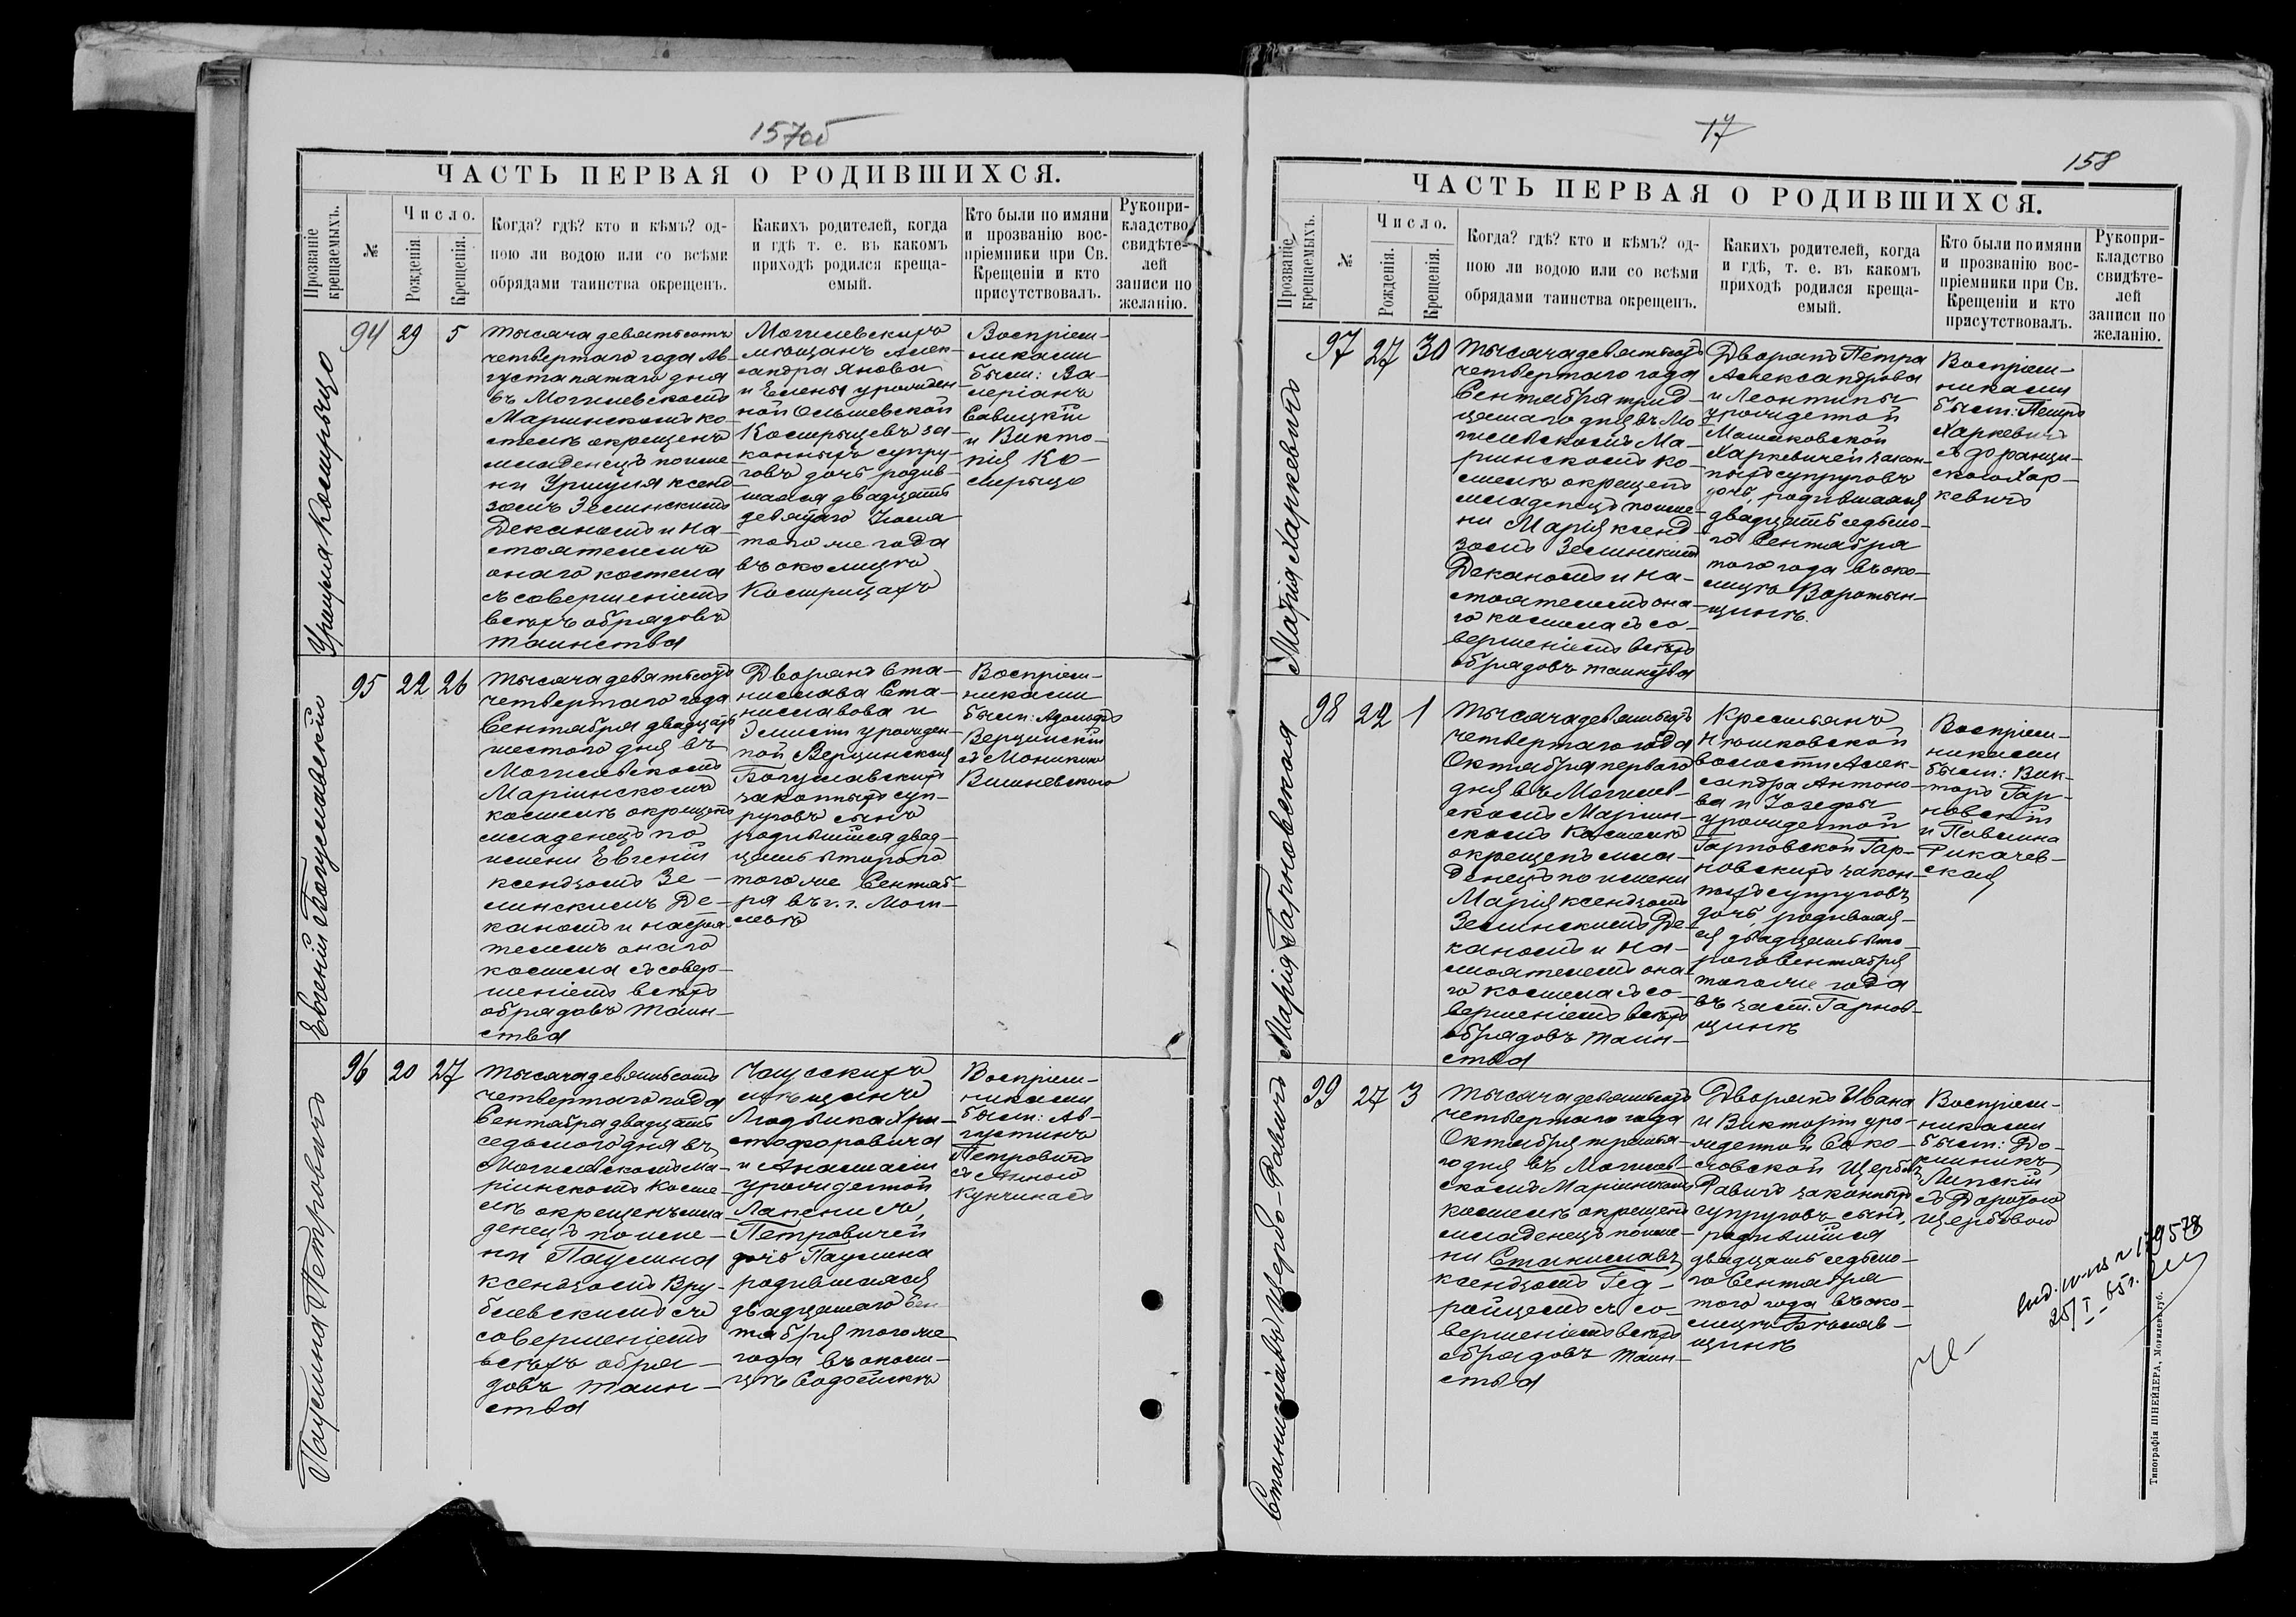 157об
ЧАСТЬ ПЕРВАЯ О РОДИВШИХСЯ.
Прозваніе крещаемыхъ.
№
Число.
Рожденія.
Крещенія.
Когда? гдѣ? кто и кѣмъ? од-
ною ли водою или со всѣми
обрядами таинства окрещенъ.
Какихъ родителей, когда
и гдѣ т. е. въ какомъ
приходѣ родился креща-
емый.
Кто были по имяни
и прозванію вос-
пріемники при Св.
Крещеніи и кто
присутствовалъ.
Рукопри-
кладство
свидѣте-
лей
записи по
желанію.
Урщуля Костырцо
94
29
5
Тысяча девятьсотъ
четвертаго года Ав-
густа пятаго дня
въ Могилевскомъ
Маріинскомъ ко-
стелѣ окрещенъ
младенецъ по име-
ни Урщуля ксенд-
зомъ Зелинскимъ
Деканомъ и На-
стоятелемъ
онаго костела
съ совершеніемъ
всѣхъ обрядовъ
таинства
Могилевскихъ
мѣщанъ Алек-
сандра Янова
и Елены урожден-
ной Ольшевской
законныхъ супру-
говъ дочь родив-
шаяся двадцать
девятаго Іюля
того же года
въ околицѣ
Кострицахъ
Воспріем-
никами
были: Ва-
леріанъ
Савицкій
и Викто-
рія
Евгеній Богуславскій
95
22
26
Тысяча девятьсотъ
четвертаго года
Сентября двадцать
шестого дня въ
Могилевскомъ
Маріинскомъ
костелѣ окрещенъ
младенецъ по
имени Евгеній
ксендзомъ Зе-
линскимъ Де-
каномъ и настоя-
телемъ онаго
костела съ совер-
шеніемъ всѣхъ
обрядовъ таин-
ства
Дворянъ Ста-
нислава Ста-
ниславова и
Эмиліи урожден-
ной Верцинской
Богуславскихъ
законныхъ суп-
руговъ сынъ
родившійся двад-
цать второго
того же Сентяб-
ря въ г. Моги-
левѣ
Воспріем-
никами
были: Адольфъ
Верцинскій
съ Моникою
Вишневского
Паулина Петровичъ
96
20
27
Тысяча девятьсотъ
четвертаго года
Сентября двадцать
седьмого дня въ
Могилевскомъ Ма-
ріинскомъ косте-
лѣ окрещенъ мла-
денецъ по име-
ни Паулина
ксендзомъ Вру-
блевскимъ съ
совершеніемъ
всѣхъ обря-
довъ таин-
ства
Чаусскихъ
мѣщанъ
Людвика Хри-
стофоровича
и Анастасіи
урожденной
Петровичей
дочь Паулина
родившаяся
двадцатаго Сен-
тября того же
года въ околи-
цѣ
Воспріем-
никами
были: Ав-
густинъ
Петровичъ
съ Анною
17
158
ЧАСТЬ ПЕРВАЯ О РОДИВШИХСЯ.
Прозваніе крещаемыхъ.
№
Число.
Рожденія.
Крещенія.
Когда? гдѣ? кто и кѣмъ? од-
ною ли водою или со всѣми
обрядами таинства окрещенъ.
Какихъ родителей, когда
и гдѣ, т. е. въ какомъ
приходѣ родился креща-
емый.
Кто были по имяни
и прозванію вос-
пріемники при Св.
Крещеніи и кто
присутствовалъ.
Рукопри-
кладство
свидѣте-
лей
записи по
желанію.
Марія Харкевичъ
97
27
30
Тысяча девятьсотъ
четвертаго года
Сентября трид-
цатаго дня въ Мо-
гилевскомъ Ма-
ріинскомъ ко-
стелѣ окрещенъ
младенецъ по име-
ни Марія ксенд-
зомъ Зелинскимъ
Деканомъ и На-
стоятелемъ она-
го костела съ со-
вершеніемъ всѣхъ
обрядовъ таинства
Дворянъ Петра
Александрова
и Леонтины
урожденной
Харкевичей закон-
ныхъ супруговъ
дочь, родившаяся
двадцать седьмо-
го Сентября
того года въ око-
лицѣ Воротын-
щинѣ.
Воспріем-
никами
были: Петръ
Харкевичъ
съ Францис-
ского Хар-
кевичъ
Марія Гарновская
98
22
1
Тысяча девятьсотъ
четвертаго года
Октября перваго
дня въ Могилев-
скомъ Маріин-
скомъ костелѣ
окрещенъ мла-
денецъ по имени
Марія ксендзомъ
Зелинскимъ Де-
каномъ и На-
стоятелемъ она-
го костела съ со-
вершеніемъ всѣхъ
обрядовъ таин-
ства
Крестьянъ
волости Алек-
сандра Антоно-
ва и Юзефы
урожденной
Гарновской Гар-
новскихъ закон-
ныхъ супруговъ
дочь, родившая-
ся двадцать вто-
рого Сентября
того же года
въ заст. Гарнов-
щинѣ
Воспріем-
никами
были: Вик-
торъ Гар-
новскій
и Павлина
Рикачев-
ская
Станиславъ Щербо-Равичъ
99
27
3
Тысяча девятьсотъ
четвертаго года
Октября третья-
го дня въ Могилев-
скомъ Маріинскомъ
костелѣ окрещенъ
младенецъ по име-
ни Станиславъ
ксендзомъ Гед-
ройцемъ съ со-
вершеніемъ всѣхъ
обрядовъ таин-
ства
Дворянъ Ивана
и Викторіи уро-
жденной Соко-
ловской Щербо-
Равичъ законныхъ
супруговъ сынъ,
родившійся
двадцать седьмо-
го Сентября
того года въ око-
лицѣ Бѣляв-
щинѣ
Воспріем-
никами
были: До-
миникъ
Липскій
съ Доротою
Щербового
25/I-65г.
Типографія ШНЕЙДЕРА, Могилевъ губ.